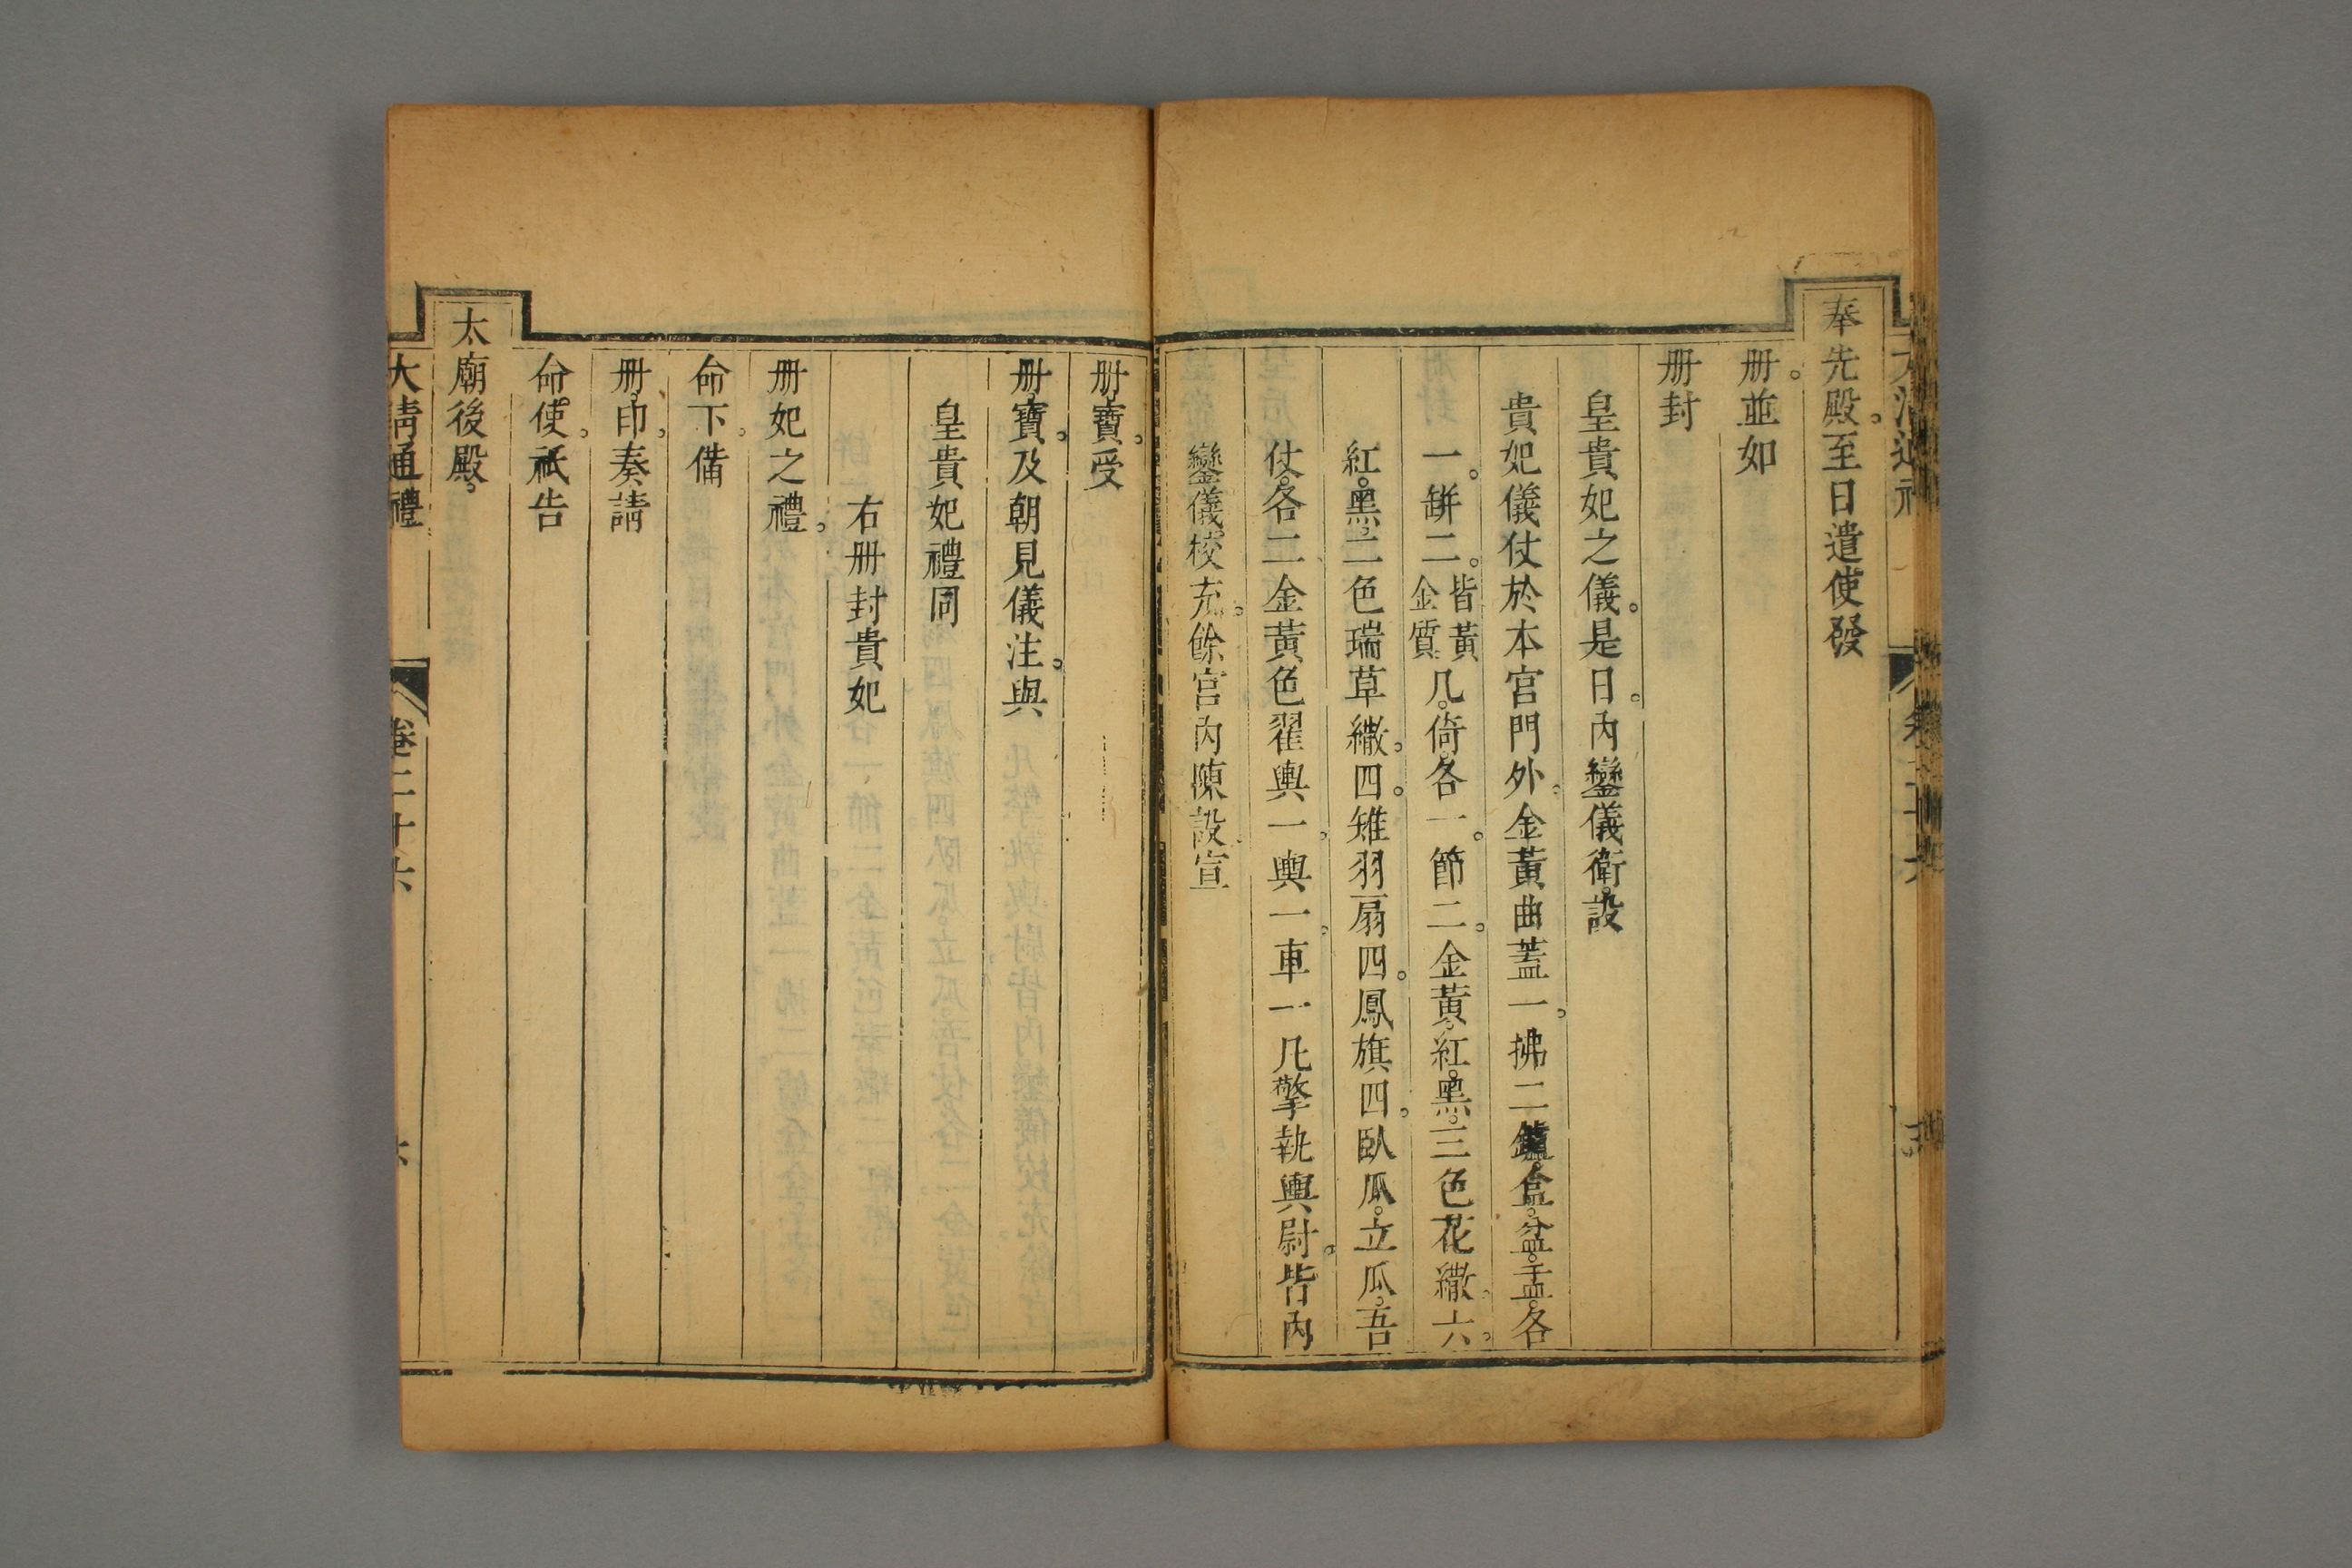 奉先殿。至日遣使發
册。並如
册封
皇貴妃之儀。是日。內鑾儀衛。設
貴妃儀仗於本宮門外。金黃曲蓋一。拂二鑪。盒。盆。盂。各
一。缾二。皆黃金質。几。倚。各一。節二。金黃。紅。黑。三色花繖。六。
紅。黑。二色瑞草繖。四。雉羽扇四。鳳旗四。臥瓜。立瓜。吾
仗。各二金黃色翟輿一。輿一。車一凡擎執輿尉。皆內
鑾儀校充。餘宮內陳設。宣
册。寶。受
册。寶。及朝見儀注。與
皇貴妃禮同
右册封貴妃
册妃之禮。
命下。備
册。印。奏請
命。使。祇告
太廟後殿。
大清通禮
卷二十六
六